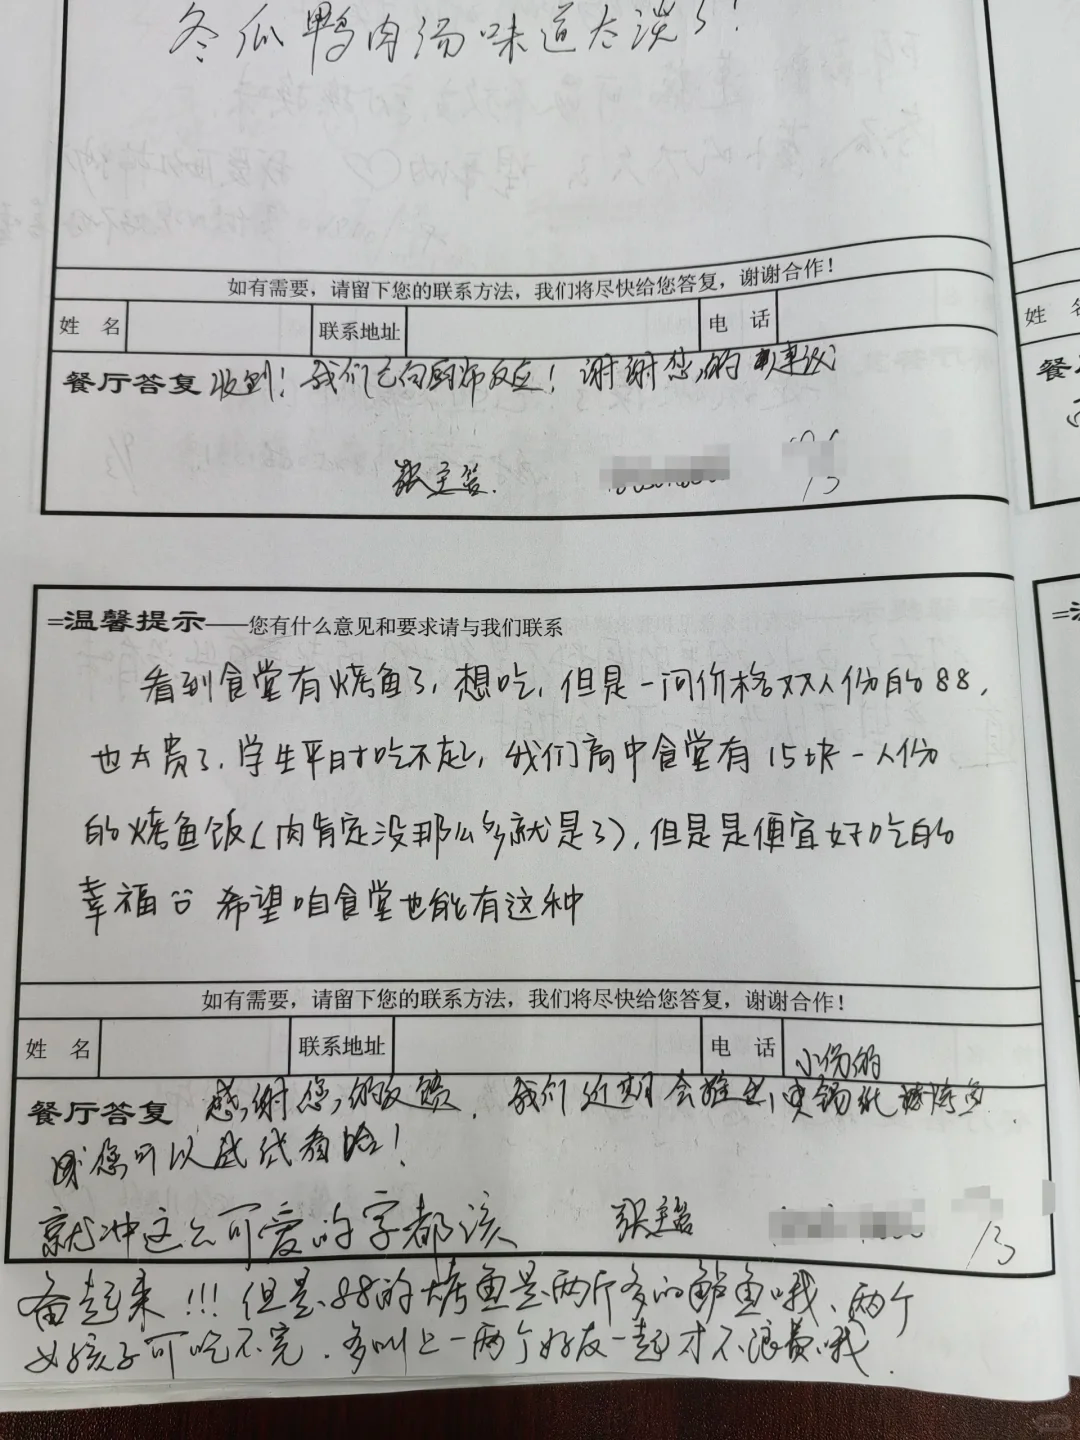 冬瓜鸭肉汤味道太淡了!
如有需要，请留下您的联系方法，我们将尽快给您答复，谢谢合作！
姓 名 联系地址 电 话
餐厅答复 收到！我们已向厨师反应！谢谢您的
张主管.
=温馨提示——您有什么意见和要求请与我们联系
看到食堂有烤鱼了,想吃,但是一问价格双人份的88,
也太贵了,学生平时吃不起,我们高中食堂有15块一人份
的烤鱼饭(肉肯定没那么多就是了),但是是便宜好吃的
幸福 希望咱食堂也能有这种
如有需要，请留下您的联系方法，我们将尽快给您答复，谢谢合作！
姓 名 联系地址 电 话 小份的
餐厅答复 感谢您的反馈.我们近期会推出
您可以试试看哈!
就冲这么可爱的字都该
张主管
备起来!!!但是88的烤鱼是两斤多的鲈鱼哦、两个
女孩子可吃不完.多叫上一两个好友一起才不浪费哦.